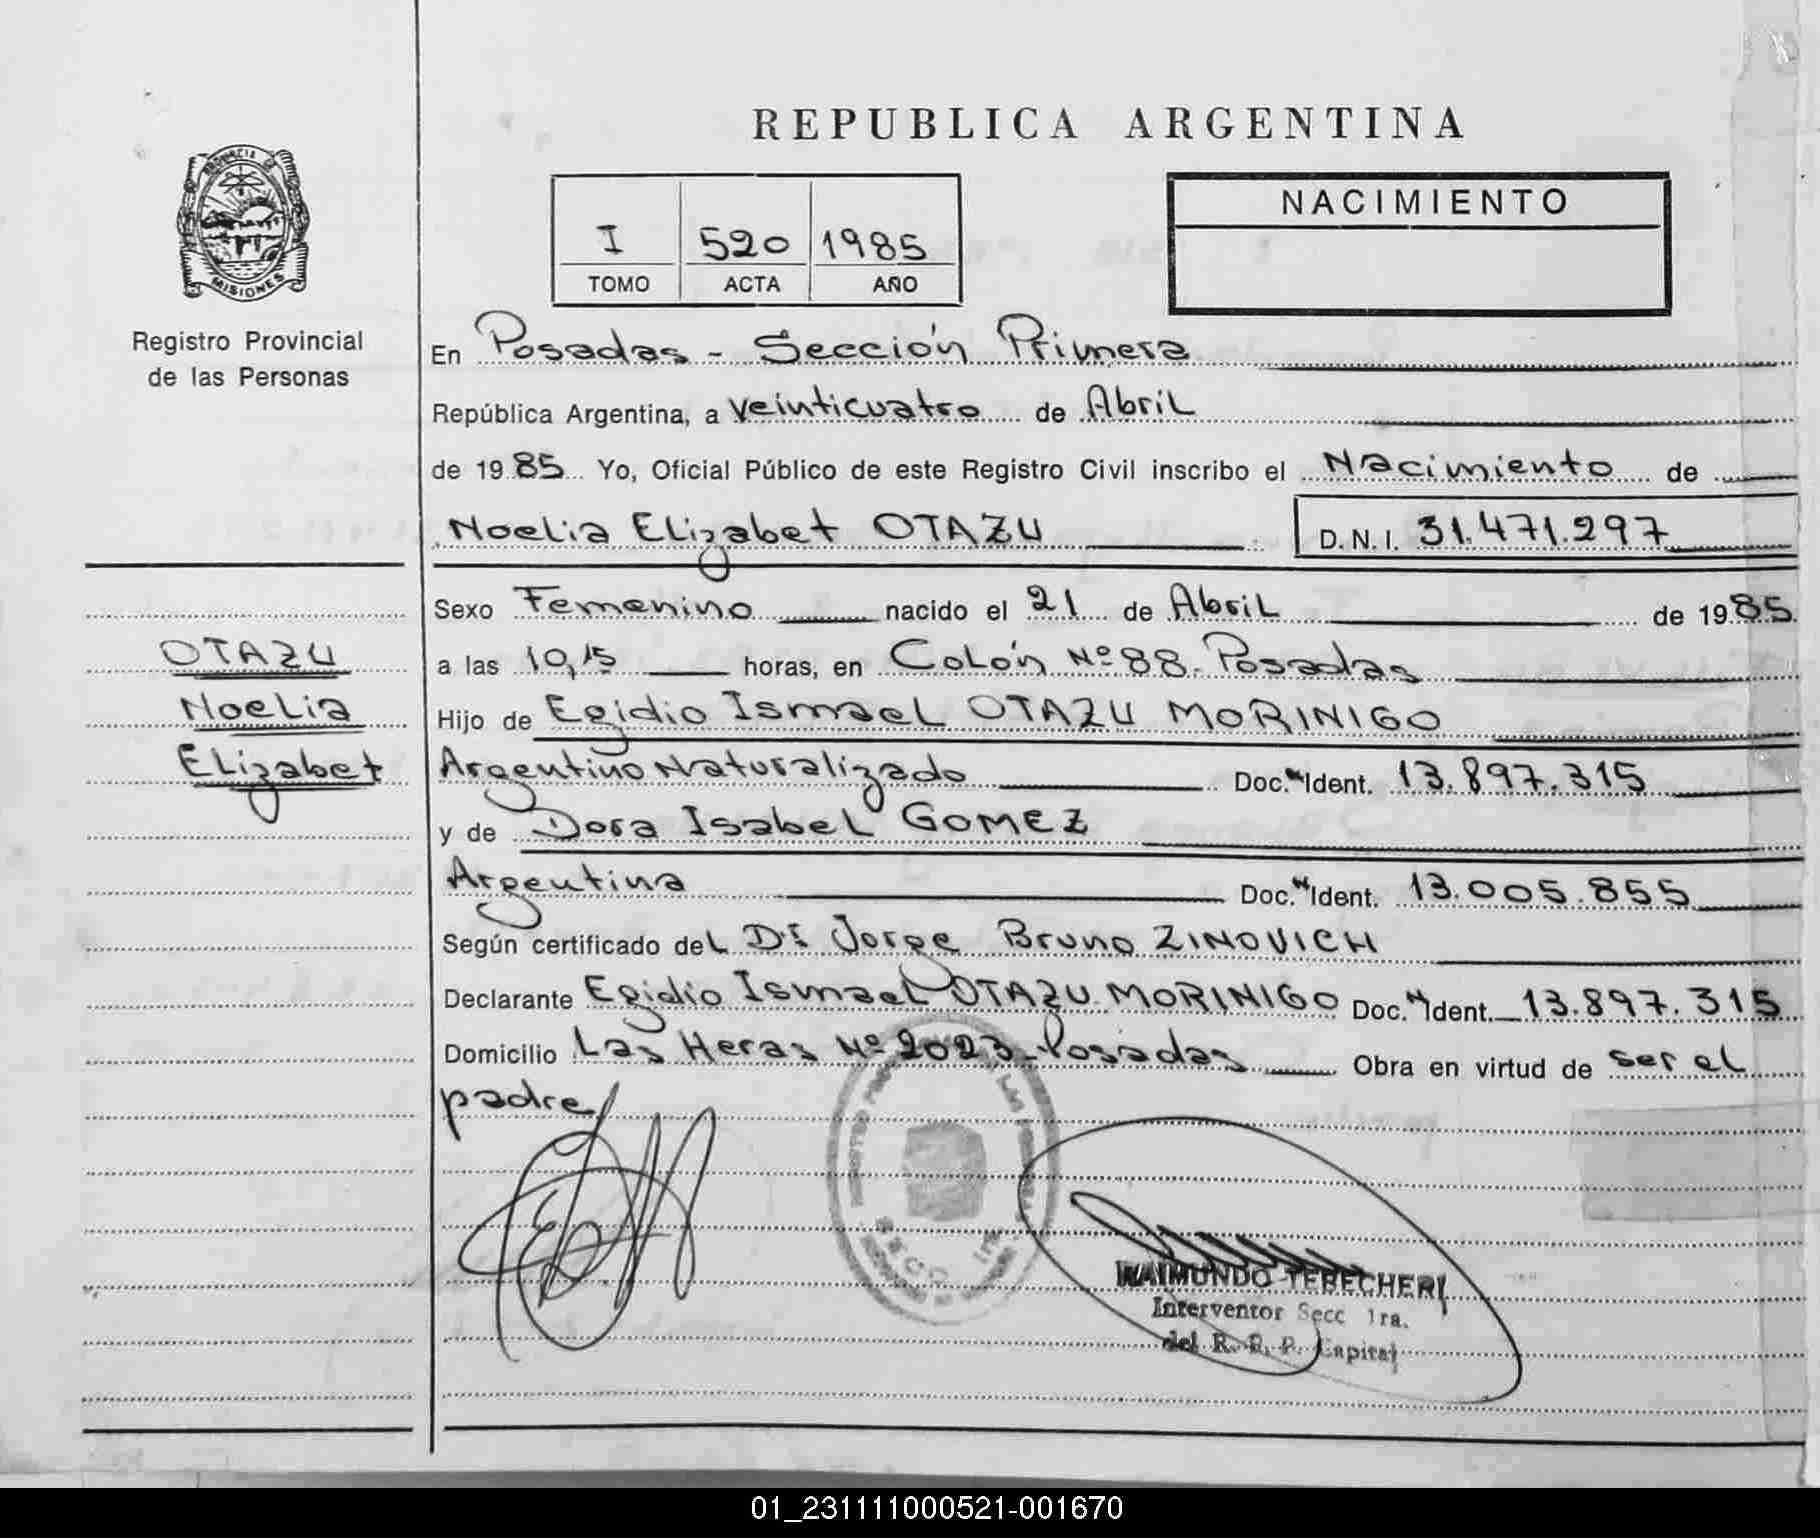 REPUBLICA ARGENTINA
PROVINCIA DE
MISIONES
Registro Provincial
de las Personas
I 520 1985
TOMO ACTA AÑO
NACIMIENTO
En Posadas - Sección Primera
República Argentina, a veinticuatro de Abril
de 1985 Yo, Oficial Público de este Registro Civil inscribo el Nacimiento de
Noelia Elizabet OTAZU D.N.I. 31.471.297
Sexo Femenino nacido el 21 de Abril de 1985
OTAZU
Noelia
Elizabet
a las 10,15 horas, en Colón Nº 88. Posadas
Hijo de Egidio Ismael OTAZU MORINIGO
Argentino Naturalizado Doc. Ident. 13.897.315
y de Dora Isabel GOMEZ
Argentina Doc. Ident. 13.005.855
Según certificado del Dr. Jorge Bruno ZINOVICH
Declarante Egidio Ismael OTAZU MORINIGO Doc. Ident. 13.897.315
Domicilio Las Heras Nº 2023 - Posadas Obra en virtud de ser el
padre
RAIMUNDO TEBECHERI
Interventor Secc 1ra.
del R. P. P. Capital
01_231111000521-001670